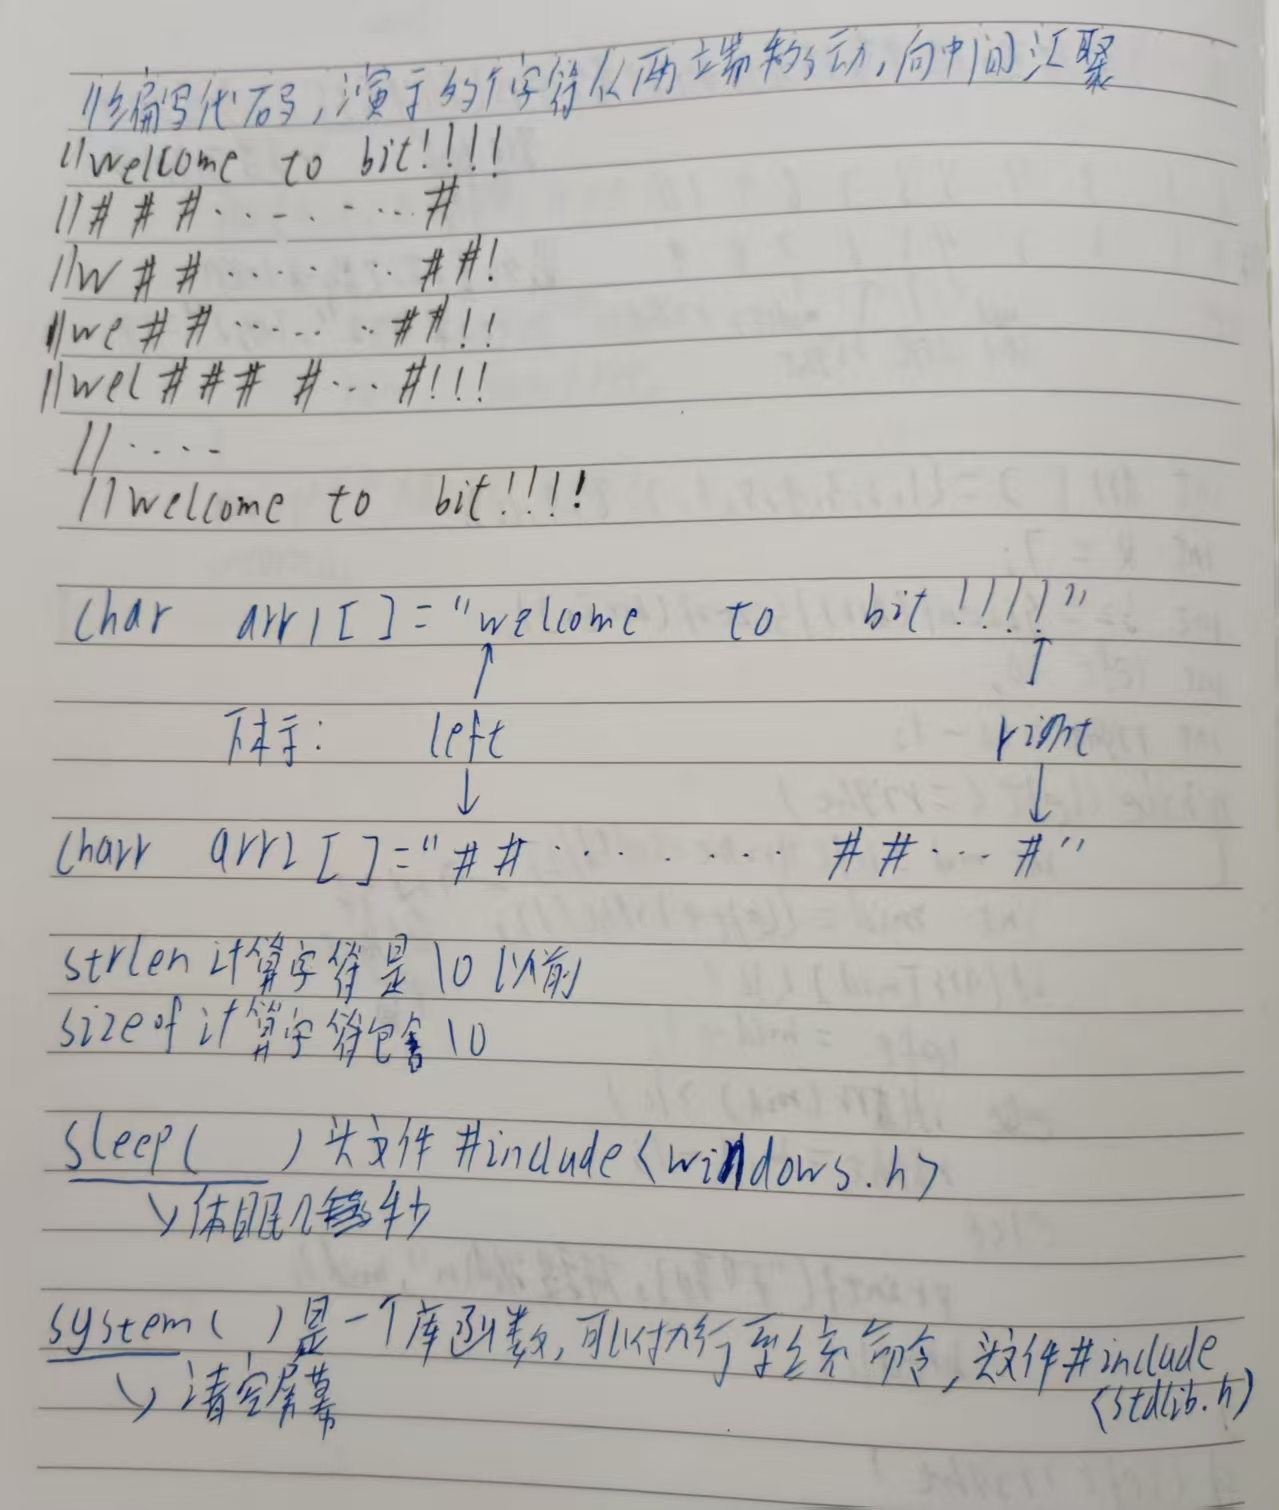 //编写代码,演示多个字符从两端移动,向中间汇聚
//welcome to bit!!!!
//# # # ......... #
//w # # ......... # # !
//we # # ....... # # ! !
//wel # # # # ... # ! ! !
// ....
//welcome to bit!!!!
char arr1[ ]="welcome to bit!!!!"
下标: left right
charr arr2[ ]="# # ......... # # ... #"
strlen计算字符是\0以前
sizeof计算字符包含\0
sleep( )头文件#include<windows.h>
休眠几 秒
system( )是一个库函数,可以执行系统命令,头文件#include
<stdlib.h>
清空屏幕